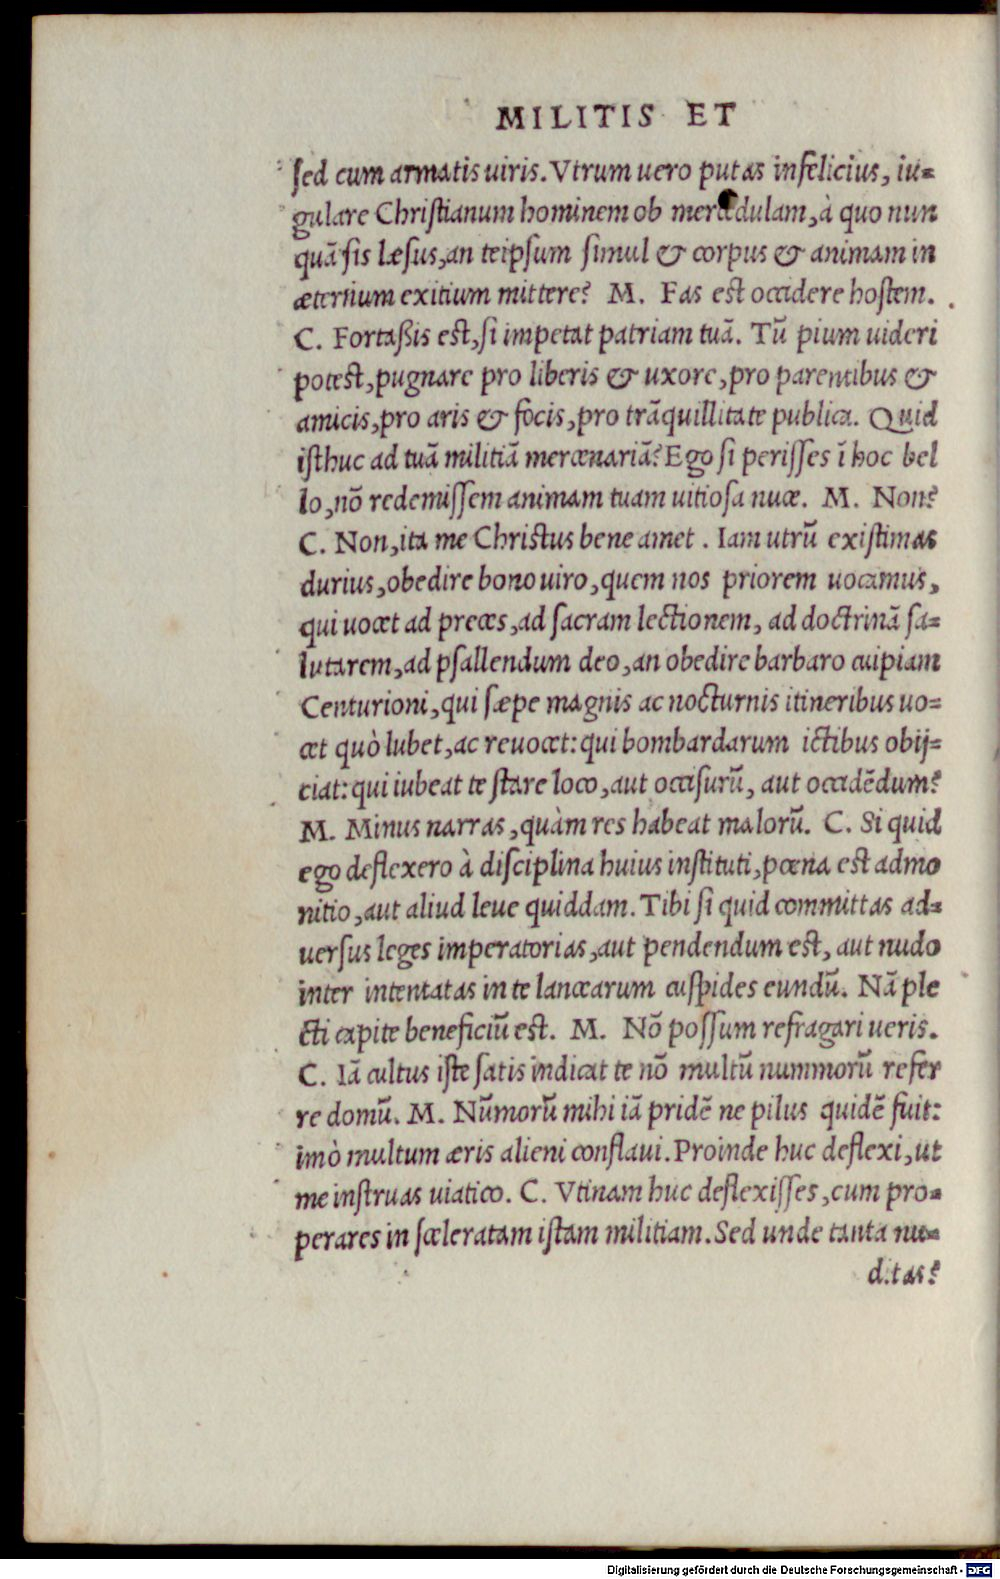 MILITIS ET
sed cum armatis uiris. Vtrum uero putas infelicius, iu=
gulare Christianum hominem ob mercedulam, à quo nun
quã sis læsus, an teipsum simul & corpus & animam in
æternum exitium mittere? M. Fas est occidere hostem.
C. Fortaßis est, si impetat patriam tuã. Tũ pium uideri
potest, pugnare pro liberis & uxore, pro parentibus &
amicis, pro aris & focis, pro trãquillitate publica. Quid
isthuc ad tuã militiã mercenariã? Ego si perisses ĩ hoc bel
lo, nõ redemissem animam tuam uitiosa nuce. M. Non?
C. Non, ita me Christus bene amet. Iam utrũ existimas
durius, obedire bono uiro, quem nos priorem uocamus,
qui uocet ad preces, ad sacram lectionem, ad doctrinã sa=
lutarem, ad psallendum deo, an obedire barbaro cuipiam
Centurioni, qui sæpe magnis ac nocturnis itineribus uo=
cet quò lubet, ac reuocet: qui bombardarum ictibus obij=
ciat: qui iubeat te stare loco, aut occisurũ, aut occidẽdum?
M. Minus narras, quàm res habeat malorũ. C. Si quid
ego deflexero à disciplina huius instituti, pœna est admo
nitio, aut aliud leue quiddam. Tibi si quid committas ad=
uersus leges imperatorias, aut pendendum est, aut nudo
inter intentatas in te lancearum cuspides eundũ. Nã ple
cti capite beneficiũ est. M. Nõ possum refragari ueris.
C. Iã cultus iste satis indicat te nõ multũ nummorũ refer
re domũ. M. Nũmorũ mihi iã pridẽ ne pilus quidẽ fuit:
imò multum æris alieni conflaui. Proinde huc deflexi, ut
me instruas uiatico. C. Vtinam huc deflexisses, cum pro=
perares in sceleratam istam militiam. Sed unde tanta nu=
ditas?
Digitalisierung gefördert durch die Deutsche Forschungsgemeinschaft - DFG